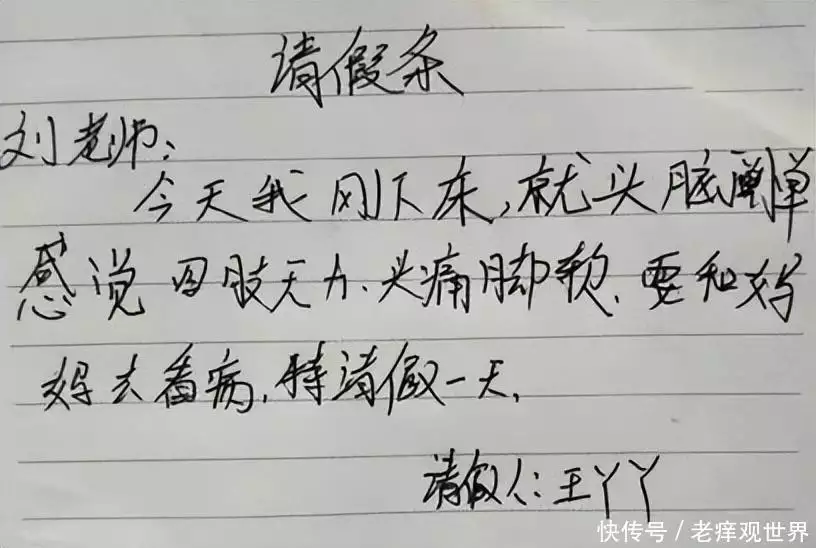 请假条
刘老师:
今天我刚下床,就头脑
感觉四肢无力、头痛脚软、要和妈
妈去看病,特请假一天,
请假人:王丫丫
快传号/老痒观世界